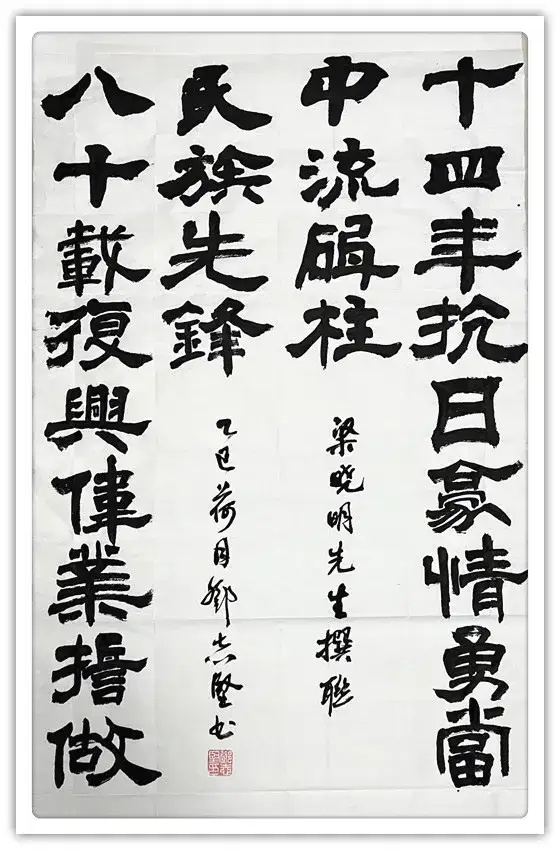 十四年抗日豪情勇當
中流砥柱
梁晓明先生撰聯
八十載復興偉業誓做
民族先鋒
乙巳荷月鄧志堅书